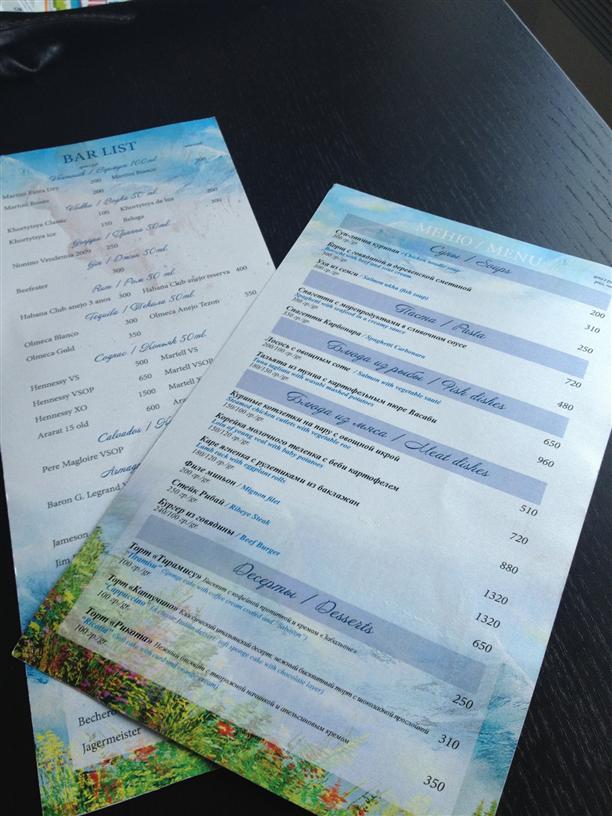 BAR LIST
Vermouth / Вермут 100ml
Martini Extra Dry 200 Martini Bianco 200
Martini Rosso 200
Vodka / Водка 50 ml
Khortytsya Classic 100 Khortytsya de ice 300
Khortytsya ice 150 Beluga
Grappa / Граппа 50ml
Nonino Vendemia 2009 250
Gin / Джин 50ml
Beefeater 300
Rum / Ром 50 ml
Habana Club anejo 3 anos 300 Habana Club anejo reserva 400
Tequila / Текила 50ml
Olmeca Blanco 300 Olmeca Anejo Tezon 550
Olmeca Gold 350
Cognac / Коньяк 50ml
Hennessy VS 500 Martell VS
Hennessy VSOP 650 Martell VSOP
Hennessy XO 1500 Martell
Ararat 15 old 600
Calvados /
Pere Magloire VSOP
Armag
Baron G. Legrand V
Jameson
Jim
Becher
Jagermeister
МЕНЮ / MENU
Супы / Soups
Суп-лапша куриная / Chicken noodle soup
300 гр/gr. 200
Борщ с говядиной и деревенской сметаной
Borscht with beef and sour cream
300 гр/gr. 310
Уха из семги / Salmon ukha (fish soup)
300 гр/gr. 250
Паста / Pasta
Спагетти с морепродуктами в сливочном соусе
Spaghetti with seafood in a creamy sauce
350 гр/gr. 720
Спагетти Карбонара / Spaghetti Carbonara
330 гр/gr. 480
Блюда из рыбы / Fish dishes
Лосось с овощным соте / Salmon with vegetable sauté
200/100 гр/gr. 650
Тальята из тунца с картофельным пюре Васаби
Tuna tagliata with wasabi mashed potatoes
180/150 гр/gr. 960
Блюда из мяса / Meat dishes
Куриные котлетки на пару с овощной икрой
Steamed chicken cutlets with vegetable roe
150/100 гр/gr. 510
Корейка молочного теленка с беби картофелем
Loin of young veal with baby potatoes
150/120 гр/gr. 720
Каре ягненка с рулетиками из баклажан
Lamb rack with eggplant rolls
180/120 гр/gr. 880
Филе миньон / Mignon filet
200 гр/gr. 1320
Стейк Рибай / Ribeye Steak
250 гр/gr. 1320
Бургер из говядины / Beef Burger
240/100 гр/gr. 650
Десерты / Desserts
Торт «Тирамису» Бисквит с кофейной пропиткой и кремом «Забальоне»
"Tiramisu" (Sponge cake with coffee cream crafted and "Sabaion")
100 гр/gr. 250
Торт «Капучино» Классический итальянский десерт, нежный бисквитный торт с шоколадной прослойкой
"Cappuccino" (Classic Italian dessert, soft sponge cake with chocolate layer)
100 гр/gr. 310
Торт «Рикота» Нежный бисквит с творожной начинкой и апельсиновым кремом
"Ricotta" (Soft cake with curd and orange cream)
100 гр/gr. 350